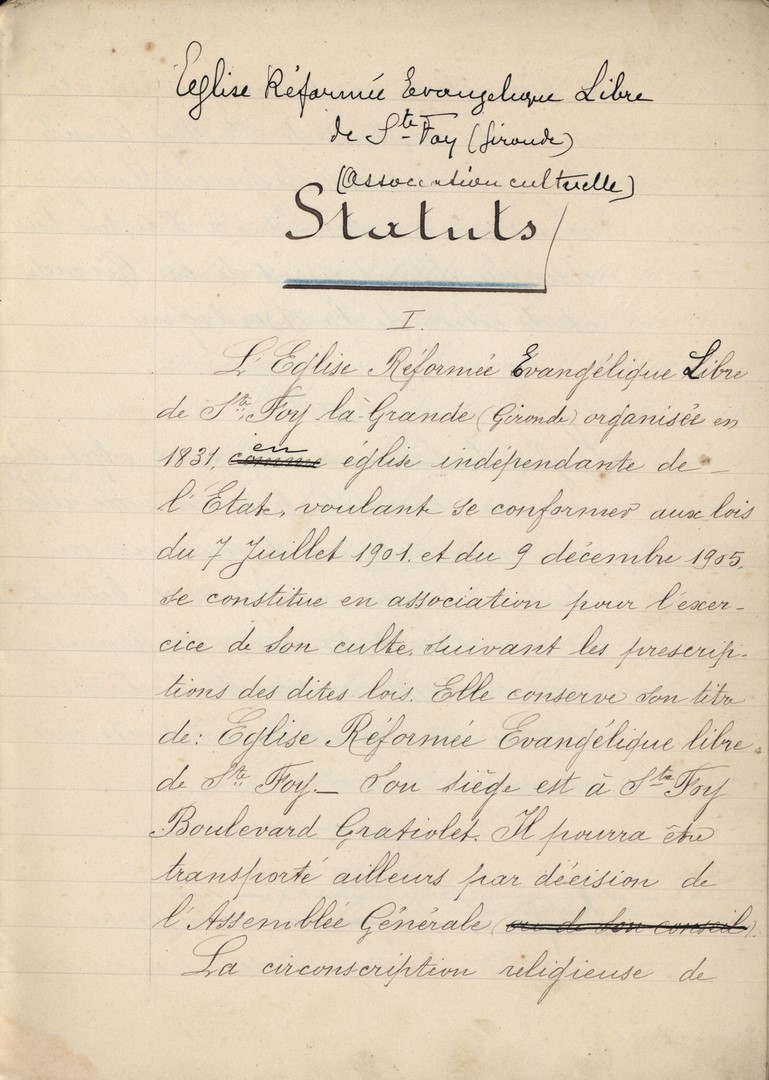 Eglise Réformée Evangelique Libre
de Ste Foy (Gironde)
(Association cultuelle)
Statuts
I.
L'Eglise Réformée Evangélique Libre
de Ste Foy la Grande (Gironde) organisée en
1831, comme en église indépendante de
l'Etat, voulant se conformer aux lois
du 7 Juillet 1901. et du 9 décembre 1905.
se constitue en association pour l'exer-
cice de son culte, suivant les prescrip-
tions des dites lois. Elle conserve son titre
de: Eglise Réformée Evangélique libre
de Ste Foy._ Son siège est à Ste Foy
Boulevard Gratiolet. Il pourra être
transporté ailleurs par décision de
l'Assemblée Générale (ou de son conseil).
La circonscription religieuse de